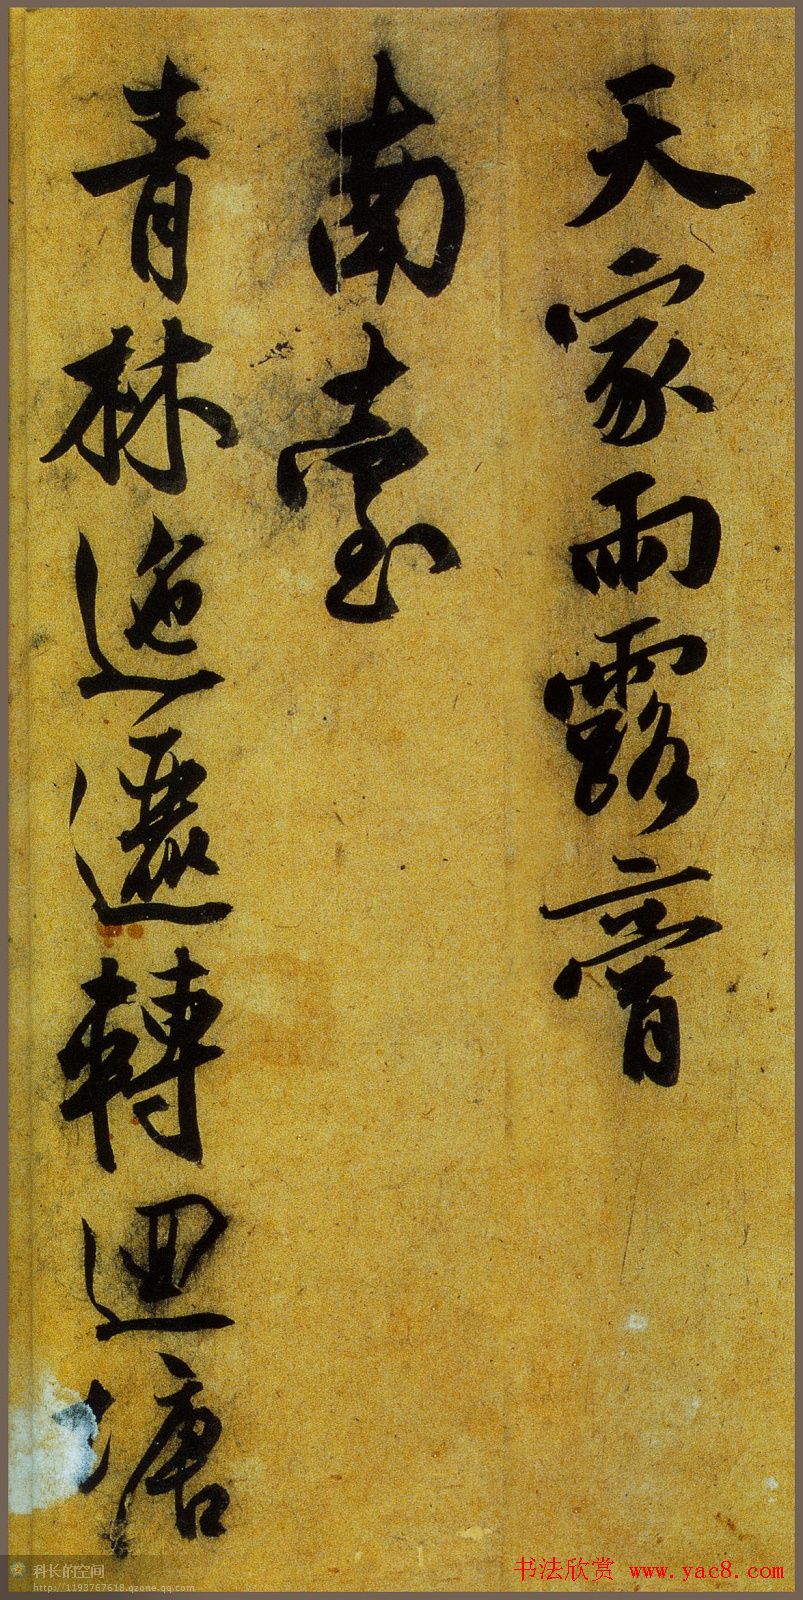 天家雨露膏
南臺
青林迤邐轉迴塘
科长的空间
http://1193767618.qzone.qq.com
书法欣赏 www.yac8.com